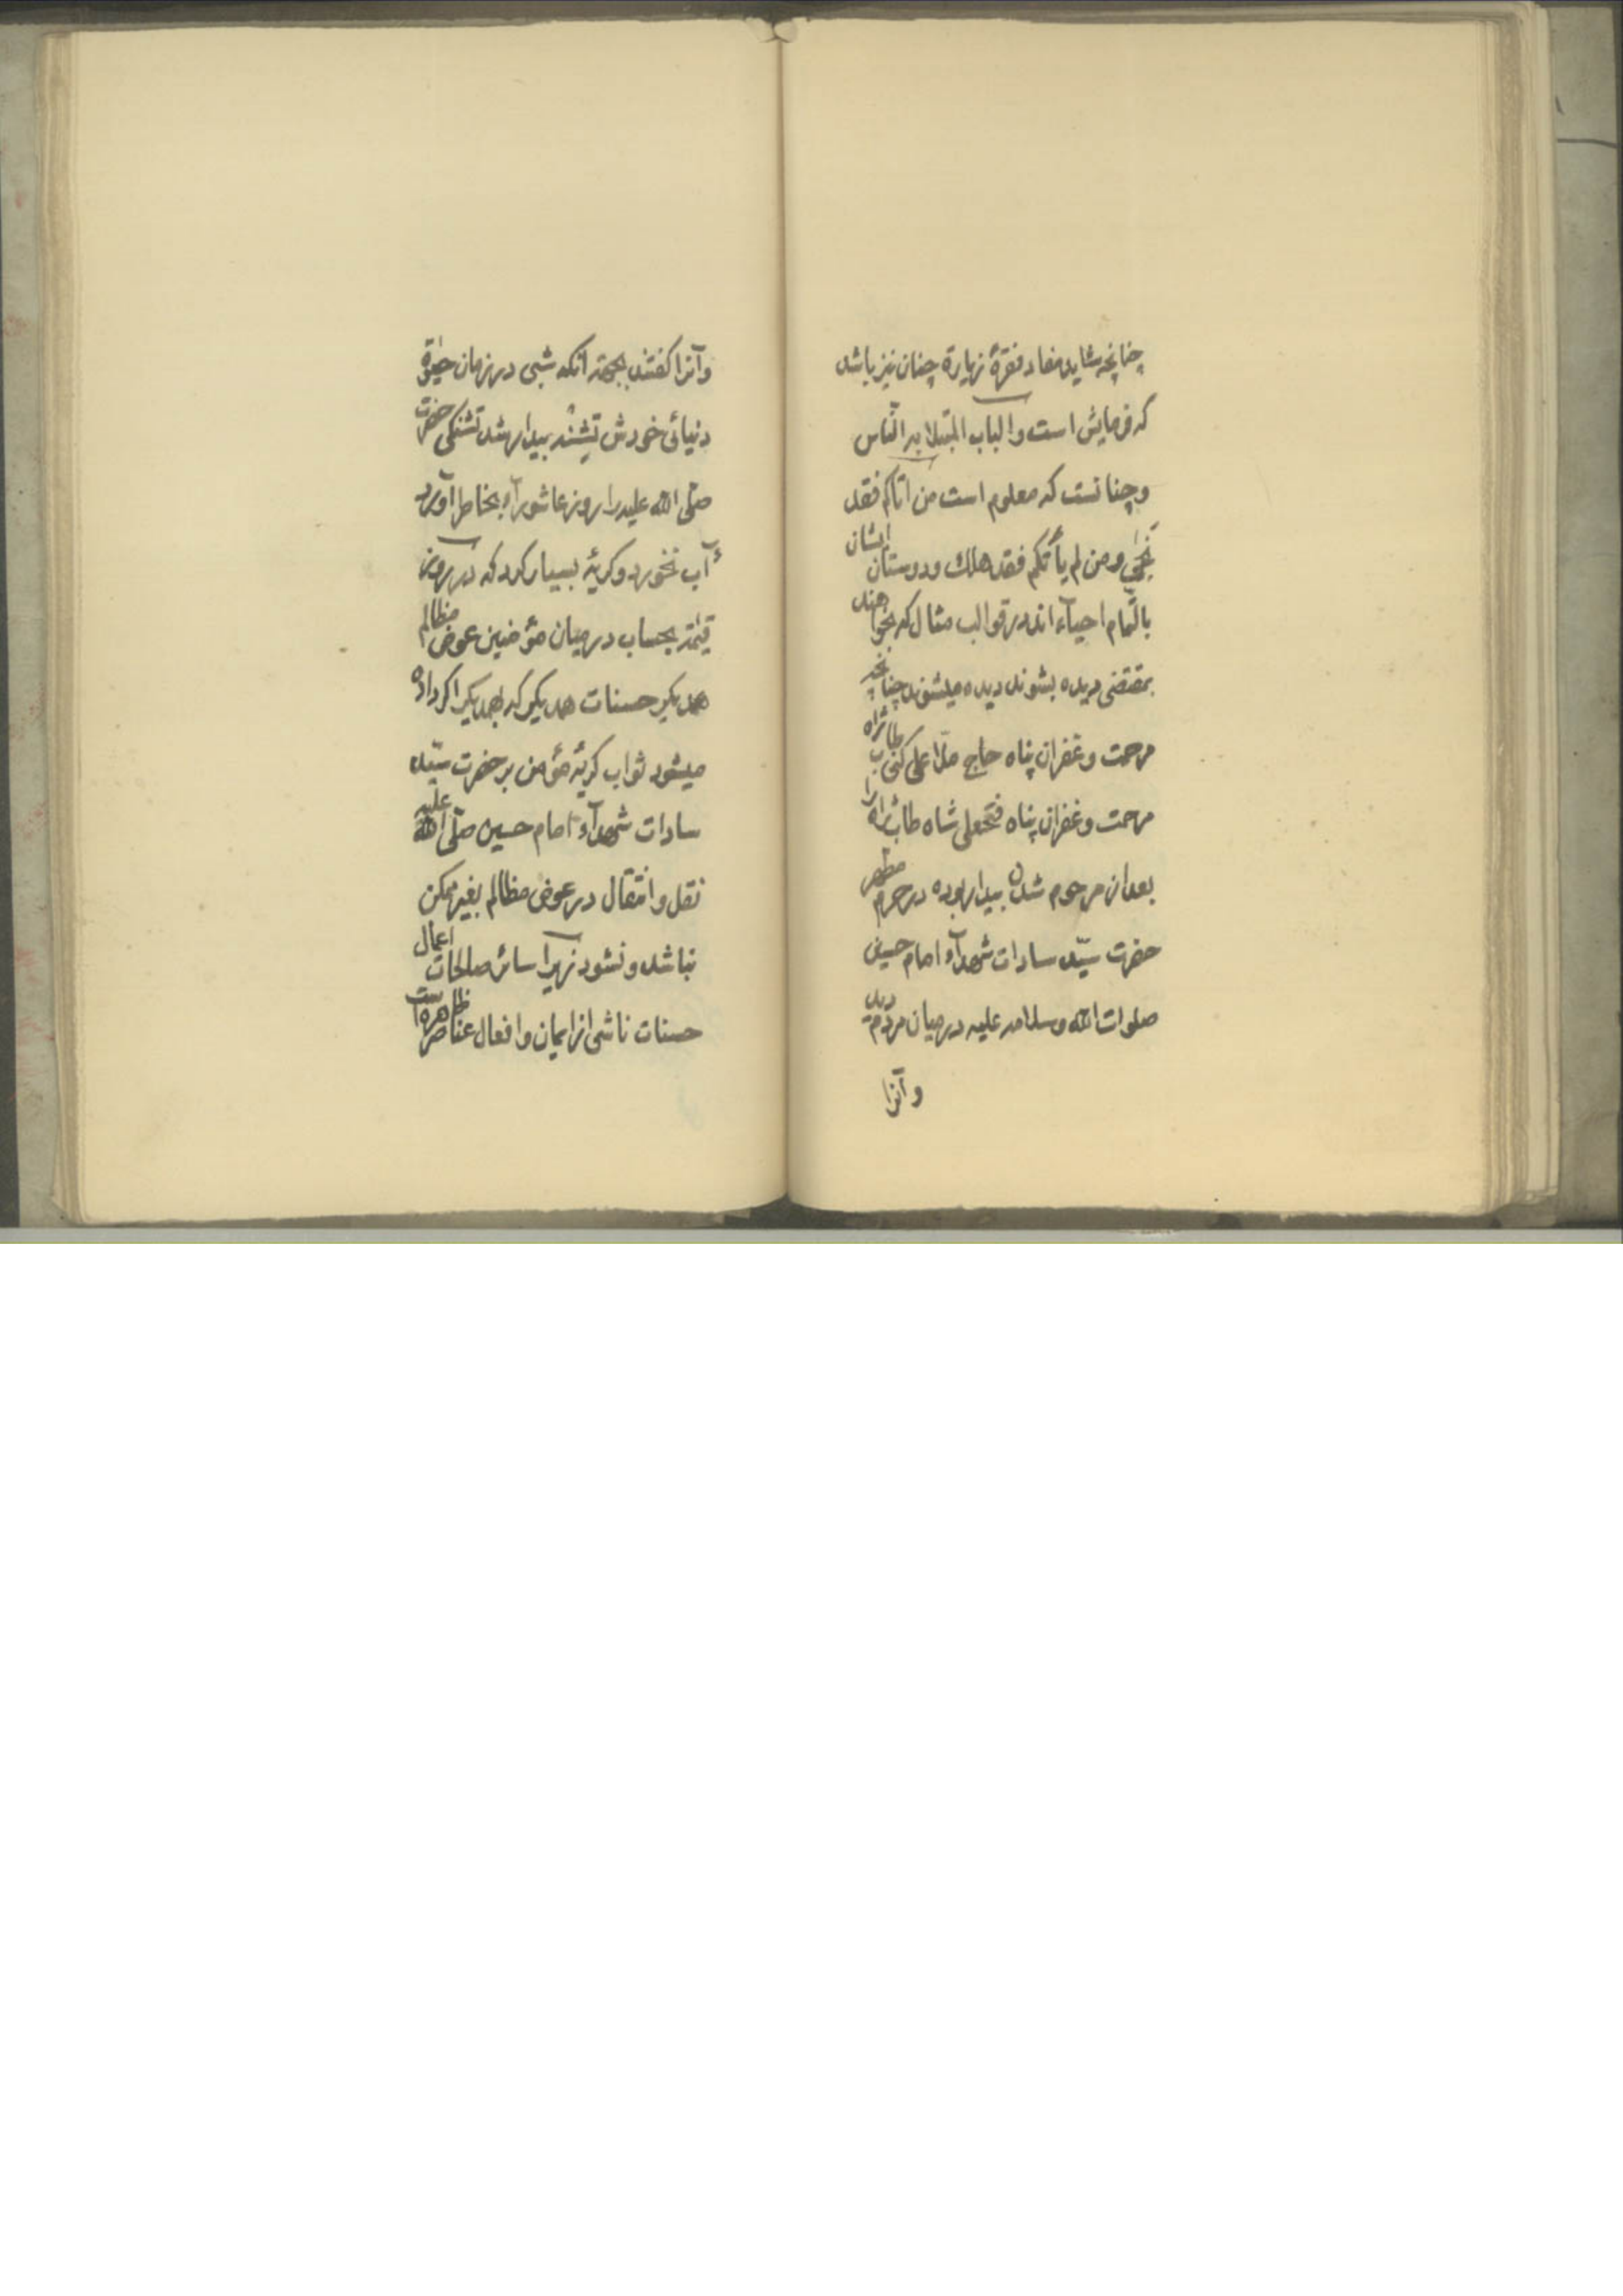 چنانچه شاید مفاد فقرهٔ زیارة چنان نیز باشد
که فرمایش است والباب المبتلا به النّاس
و چنانست که معلوم است من اتاکم فقد
نجٰی و من لم یأتکم فقد هلک و دوستان ایشان
بالتّمام احیآء اند در قوالب مثال که بخواهند
بمقتضی دیده بشوند دیده میشوند چنانچه
مرحمت و غفران پناه حاج ملّا علی کنی طاب ثراه
مرحمت و غفران پناه فتحعلی شاه طاب ثراه را
بعد از مرحوم شدن بیدار بوده در حرم مطهر
حضرت سیّد سادات شهدآء امام حسین
صلوات الله وسلامه علیه در میان مردم دید
و آنرا
و آنرا گفتند بجهة انکه شبی در زمان حیٰوة
دنیائی خودش تشنه بیدار شد تشنکی حضرت
صلّی الله علیه را روز عاشورآء بخاطر آورد
آب نخورد و کریهٔ بسیار کرد که در روز
قیٰمة بحساب در میان مؤمنین عوض مظالم
همدیکر حسنات همدیکر که بهمدیکر اکر داده
میشود ثواب کریهٔ مؤمن بر حضرت سیّد
سادات شهدآء امام حسین صلّی الله علیه
نقل و انتقال در عوض مظالم بغیر ممکن
نباشد و نشود زیرا سائر صالحات اعمال
حسنات ناشی از ایمان و افعال عناصر ظاهره است